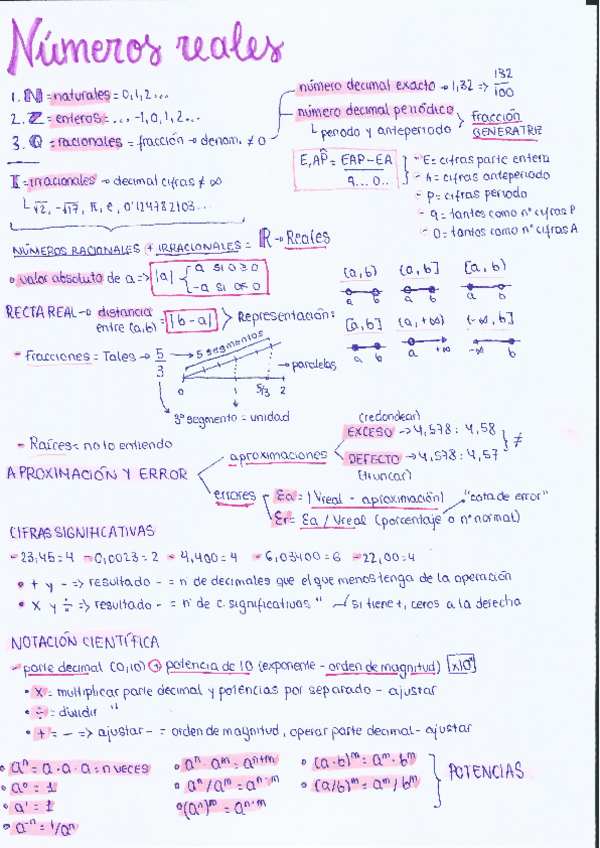 Números reales
1. ℕ = naturales = 0, 1, 2...
2. ℤ = enteros = ... -1, 0, 1, 2...
3. ℚ = racionales = fracción → denom. ≠ 0
número decimal exacto → 1,32 => 132/100
número decimal periódico
↳ periodo y anteperiodo
fracción
GENERATRIZ
E,AP̂ = EAP-EA / 9...0..
- E = cifras parte entera
- A = cifras anteperiodo
- P = cifras periodo
- 9 = tantos como nº cifras P
- 0 = tantos como nº cifras A
𝕀 = irracionales → decimal cifras ≠ ∞
↳ √2, -√17, π, e, 0'124782103...
NÚMEROS RACIONALES + IRRACIONALES = ℝ → Reales
• valor absoluto de a => |a| { a si a ≥ 0
-a si a < 0
(a, b) (a, b] [a, b)
a b a b a b
RECTA REAL → distancia entre (a,b) = |b-a| > Representación:
[a, b] (a, +∞) (-∞, b]
a b a +∞ -∞ b
- Fracciones = Tales → 5/3 → 5 segmentos
→ paralelas
0 1 5/3 2
3º segmento = unidad
- Raíces = no lo entiendo
APROXIMACIÓN Y ERROR
aproximaciones
(redondear)
EXCESO → 4,578 : 4,58
DEFECTO → 4,578 : 4,57
(truncar)
≠
errores
Ea = |Vreal - aproximación| "cota de error"
Er = Ea / Vreal (porcentaje o nº normal)
CIFRAS SIGNIFICATIVAS
- 23,45 = 4 - 0,0023 = 2 - 4,400 = 4 - 6,03400 = 6 - 22,00 = 4
• + y - => resultado - = nº de decimales que el que menos tenga de la operación
• x y ÷ => resultado - = nº de c. significativas " si tiene +, ceros a la derecha
NOTACIÓN CIENTÍFICA
- parte decimal (0,10) + potencia de 10 (exponente - orden de magnitud) [x10ⁿ]
• x = multiplicar parte decimal y potencias por separado - ajustar
• ÷ = dividir "
• + = - => ajustar - = orden de magnitud, operar parte decimal - ajustar
• aⁿ = a · a · a = n VECES
• a⁰ = 1
• a¹ = 1
• a⁻ⁿ = 1/aⁿ
• aⁿ · aᵐ = aⁿ⁺ᵐ
• aⁿ / aᵐ = aⁿ⁻ᵐ
• (aⁿ)ᵐ = aⁿ·ᵐ
• (a·b)ᵐ = aᵐ · bᵐ
• (a/b)ᵐ = aᵐ / bᵐ
POTENCIAS